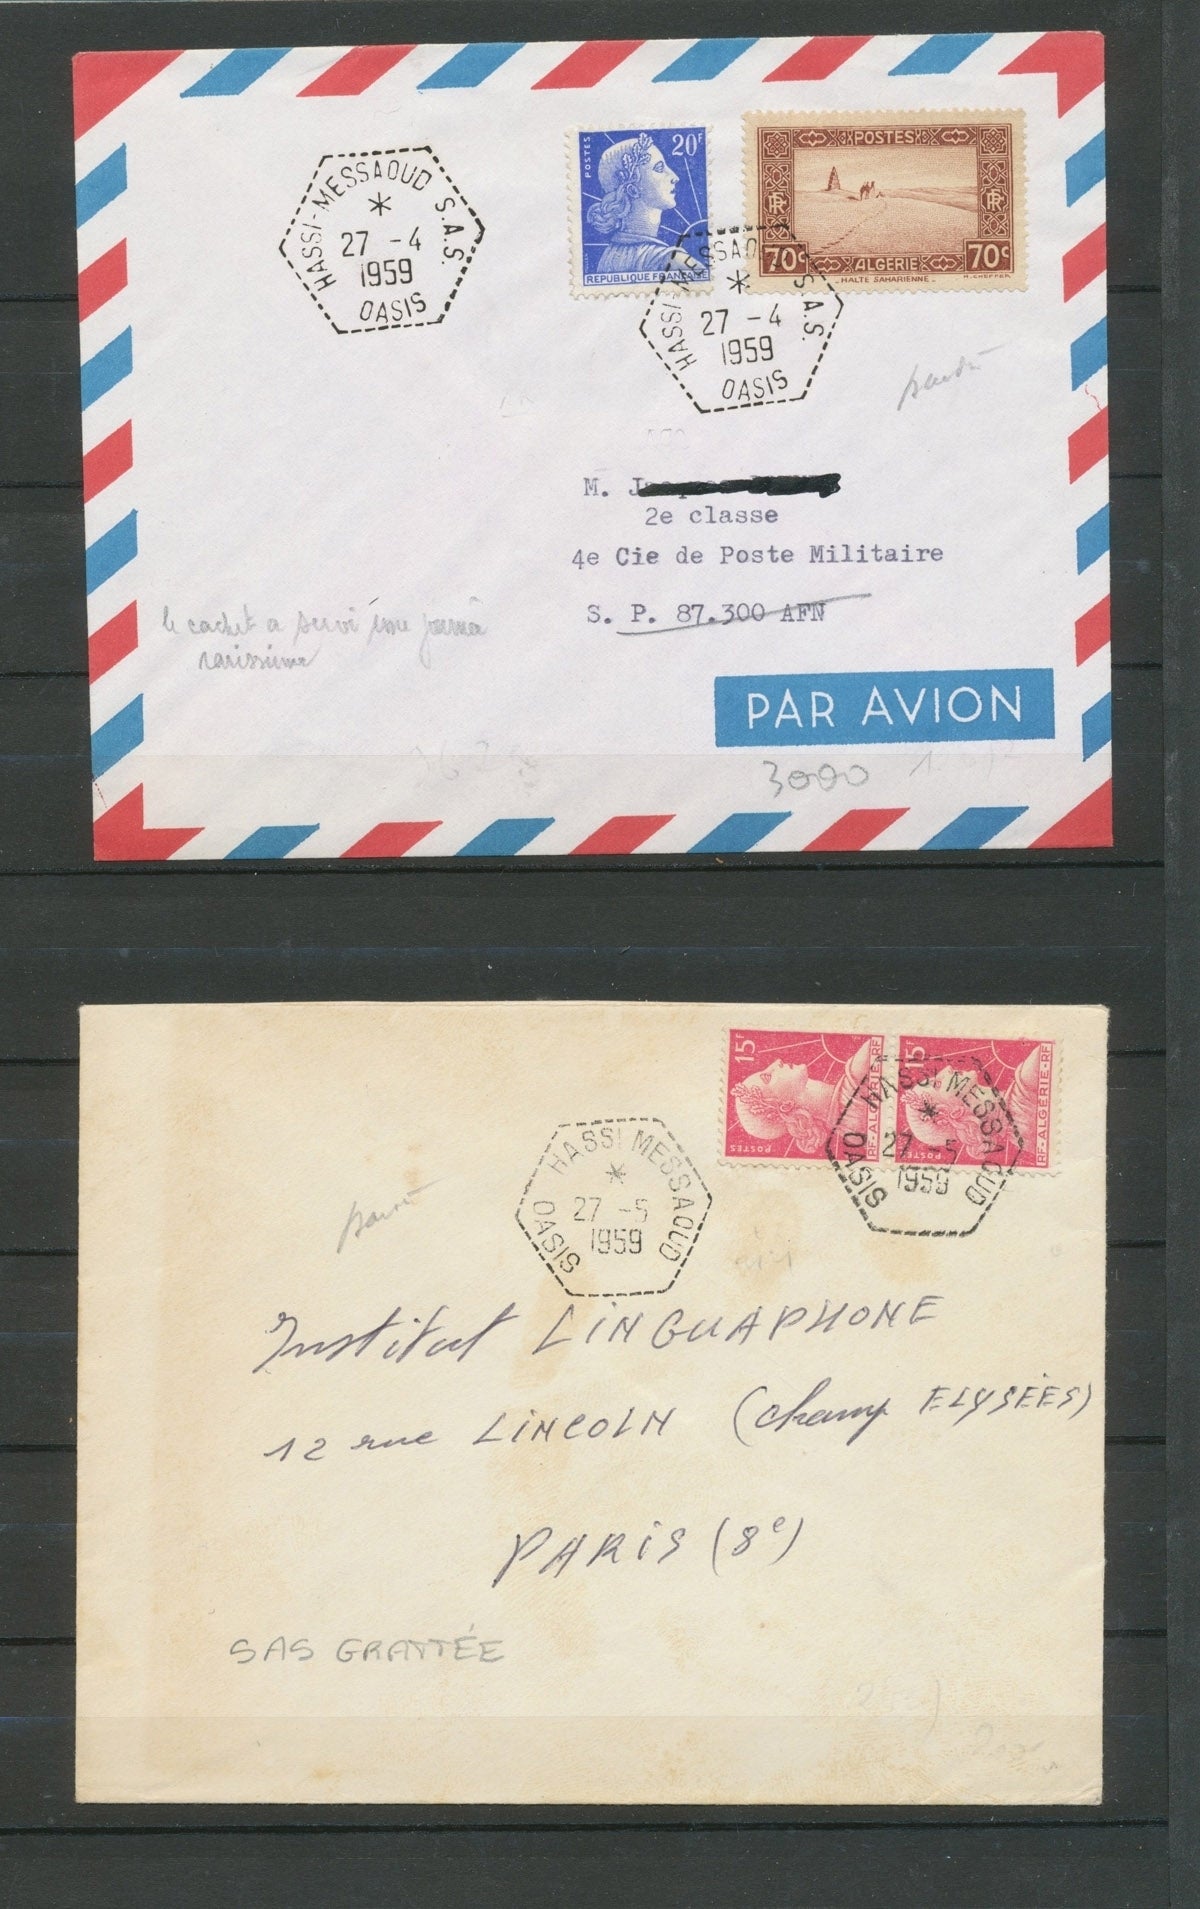 HASSI-MESSAOUD S.A.S.
27 -4
1959
OASIS
POSTES
20F
REPUBLIQUE FRANÇAISE
POSTES
RF RF
70c ALGERIE 70c
HALTE SAHARIENNE
HASSI-MESSAOUD S.A.S.
27 -4
1959
OASIS
M.
2e classe
4e Cie de Poste Militaire
S. P. 87.300 AFN
le cachet a servi une journée
rarissime
PAR AVION
3000
15F
POSTES
RF-ALGÉRIE-RF
15F
POSTES
RF-ALGÉRIE-RF
HASSI MESSAOUD
27 -5
1959
OASIS
HASSI MESSAOUD
27 -5
1959
OASIS
Institut LINGUAPHONE
12 rue LINCOLN (champ ELYSÉES)
PARIS (8e)
SAS GRATTÉE